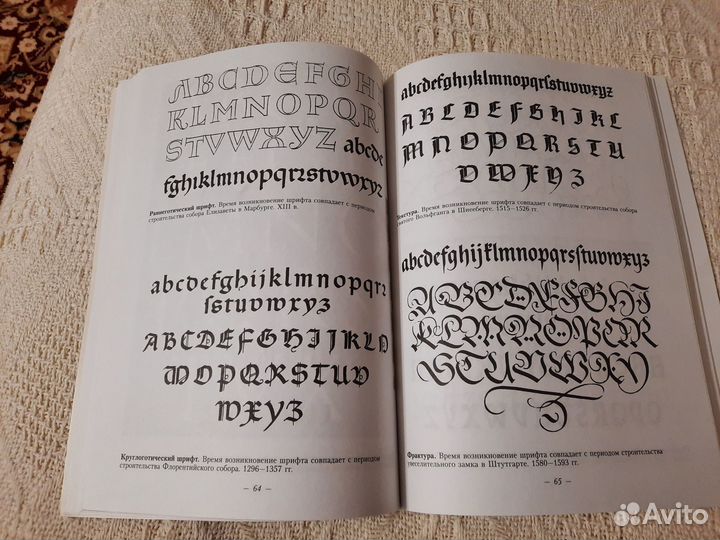 ABCDEFG
KLMNOPQR
STVWXYZ abcde
fghıklmnopqrꝛstuvwxyz
Раннеготический шрифт. Время возникновение шрифта совпадает с периодом
строительства собора Елизаветы в Марбурге. XIII в.
abcdefghijklmnopqrꝛ
ſstuvwxyz
ABCDEFGHIJKLN
MOPQRSTUV
WXYZ
Круглоготический шрифт. Время возникновение шрифта совпадает с периодом
строительства Флорентийского собора. 1296—1357 гг.
— 64 —
abcdefghijklmnopqrſstuvwxyz
ABCDEFGHIKL
MNOPQRSTU
VWXYZ
Текстура. Время возникновение шрифта совпадает с периодом строительства собора
святого Вольфганга в Шнееберге. 1515—1526 гг.
abcdefghijklmnopqrsſtuvwxyz
ABCDEFGHI
KLMNOPQR
STUVWXY
Z
Фрактура. Время возникновение шрифта совпадает с периодом строительства
увеселительного замка в Штутгарте. 1580—1593 гг.
— 65 —
Avito